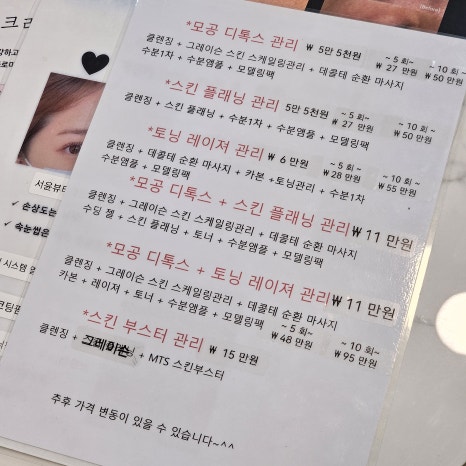 크리
서윤뷰티
✓ 손상도는
✓ 속눈썹은
시스템
코팅펌
(Before)
*모공 디톡스 관리 ₩ 5만 5천원 ~ 5회~ ₩ 27 만원 ~ 10 회~ ₩ 50 만원
클렌징 + 그레이슨 스킨 스케일링관리 + 데콜테 순환 마사지
수분1차 + 수분앰플 + 모델링팩
*스킨 플래닝 관리 5만 5천원 ~ 5회~ ₩ 27 만원 ~ 10회~ ₩ 50 만원
클렌징 + 스킨 플래닝 + 수분1차 + 수분앰플 + 모델링팩
*토닝 레이져 관리 ₩ 6 만원 ~ 5회~ ₩ 28 만원 ~ 10회~ ₩ 55 만원
클렌징 + 데콜테 순환 마사지 + 카본 +토닝관리 + 수분1차
수분앰플 + 모델링팩
*모공 디톡스 + 스킨 플래닝 관리 ₩ 11 만원
클렌징 + 그레이슨 스킨 스케일링관리 + 데콜테 순환 마사지
수딩 젤 + 스킨 플래닝 + 토너 + 수분앰플 + 모델링팩
*모공 디톡스 + 토닝 레이져 관리 ₩ 11 만원
클렌징 + 그레이슨 스킨 스케일링관리 + 데콜테 순환 마사지
카본 + 레이져 + 토너 + 수분앰플 + 모델링팩
*스킨 부스터 관리 ₩ 15 만원 ~ 5회~ ₩ 48 만원 ~ 10회~ ₩ 95 만원
클렌징 + 그레이슨 + MTS 스킨부스터
추후 가격 변동이 있을 수 있습니다~^^